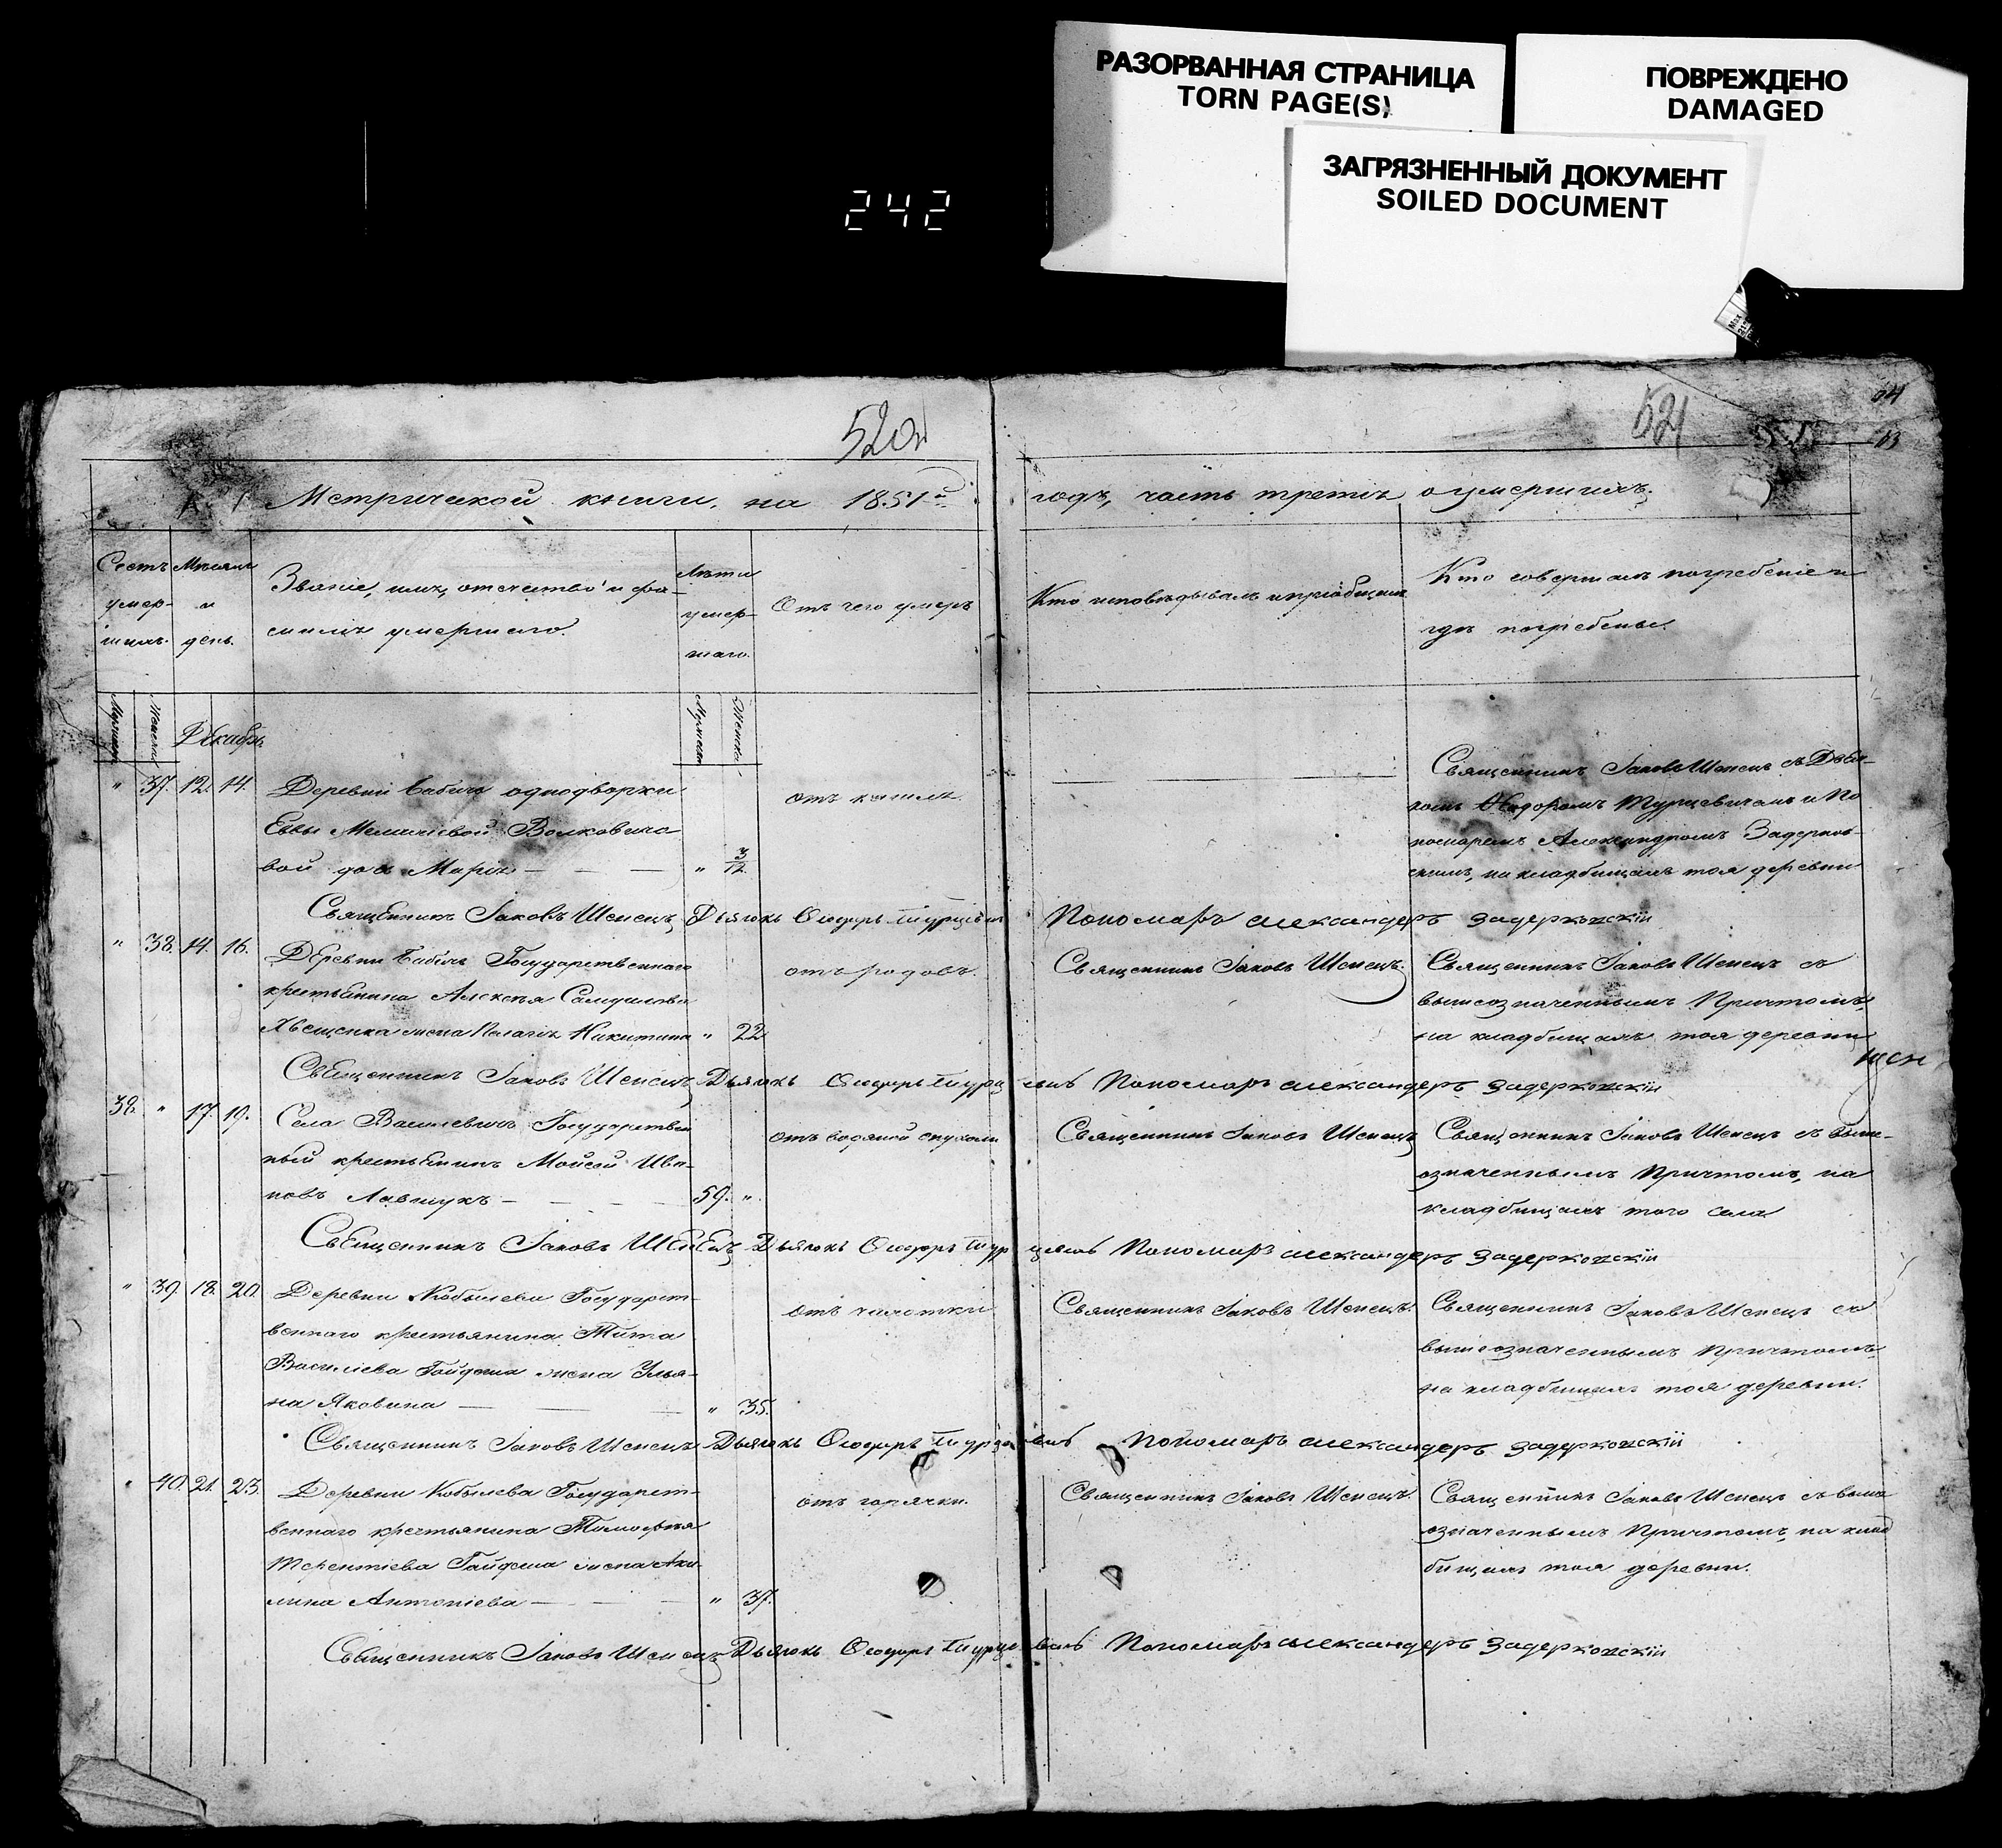 РАЗОРВАННАЯ СТРАНИЦА
TORN PAGE(S)
ПОВРЕЖДЕНО
DAMAGED
ЗАГРЯЗНЕННЫЙ ДОКУМЕНТ
SOILED DOCUMENT
242
520
521
Метрической книги, на 1851й годъ, часть третія о умершихъ.
Счетъ умер-
шихъ.
Мѣсяцъ
и
день.
Званіе, имя, отечество и фа-
милія умершаго.
Лѣта
умер-
шаго.
Отъ чего умеръ
Кто исповѣдывалъ и пріобщалъ
Кто совершалъ погребеніе и
гдѣ погребены.
Декабрь
" 37. 12. 14. Деревни Бабичъ однодворки
Евы Волковичо
вой дочь Марія — — — " 3/12
отъ кашля.
Священникъ Іаковъ Шепецъ съ Дьяч-
комъ Ѳеодоромъ Турцевичемъ и По
номаремъ Александромъ Задерков-
скимъ, на кладбищахъ тоя деревни
Священникъ Іаковъ Шепецъ Дьячокъ Ѳеодоръ Турцевичъ Пономарь александеръ задерковскій
" 38. 14. 16. Деревни Бабичъ Государственнаго
крестьянина Алексѣя Самуилова
жена Пелагія Никитина " 22
отъ родовъ.
Священникъ Іаковъ Шепецъ.
Священникъ Іаковъ Шепецъ съ
вышеозначеннымъ Причтомъ,
на кладбищахъ тоя деревни
Священникъ Іаковъ Шепецъ Дьячокъ Ѳеодоръ Турцевичъ Пономарь александеръ задерковскій
38. " 17. 19. Села Василевичъ Государствен
ный крестьянинъ Мойсей Ива-
новъ Лавшукъ — — — 59. "
отъ водяной опухоли
Священникъ Іаковъ Шепецъ
Священникъ Іаковъ Шепецъ съ выше-
означеннымъ Причтомъ, на
кладбищахъ того села
Священникъ Іаковъ Шепецъ Дьячокъ Ѳеодоръ Турцевичъ Пономарь александеръ задерковскій
" 39. 18. 20. Деревни Кобылева Государст-
веннаго крестьянина Тита
Василіева Гайдеша жена Улья-
на Яковина — — — " 35.
отъ чахотки
Священникъ Іаковъ Шепецъ.
Священникъ Іаковъ Шепецъ съ
вышеозначеннымъ Причтомъ
на кладбищахъ тоя деревни.
Священникъ Іаковъ Шепецъ Дьячокъ Ѳеодоръ Турцевичъ Пономарь александеръ задерковскій
" 40. 21. 23. Деревни Кобылева Государст-
веннаго крестьянина Тимофѣя
Терентіева Гайдеша жена Аку-
лина Антоніева — — — " 37.
отъ горячки.
Священникъ Іаковъ Шепецъ.
Священникъ Іаковъ Шепецъ съ выше
означеннымъ Причтомъ, на клад
бищахъ тоя деревни.
Священникъ Іаковъ Шепецъ Дьячокъ Ѳеодоръ Турцевичъ Пономарь александеръ задерковскій